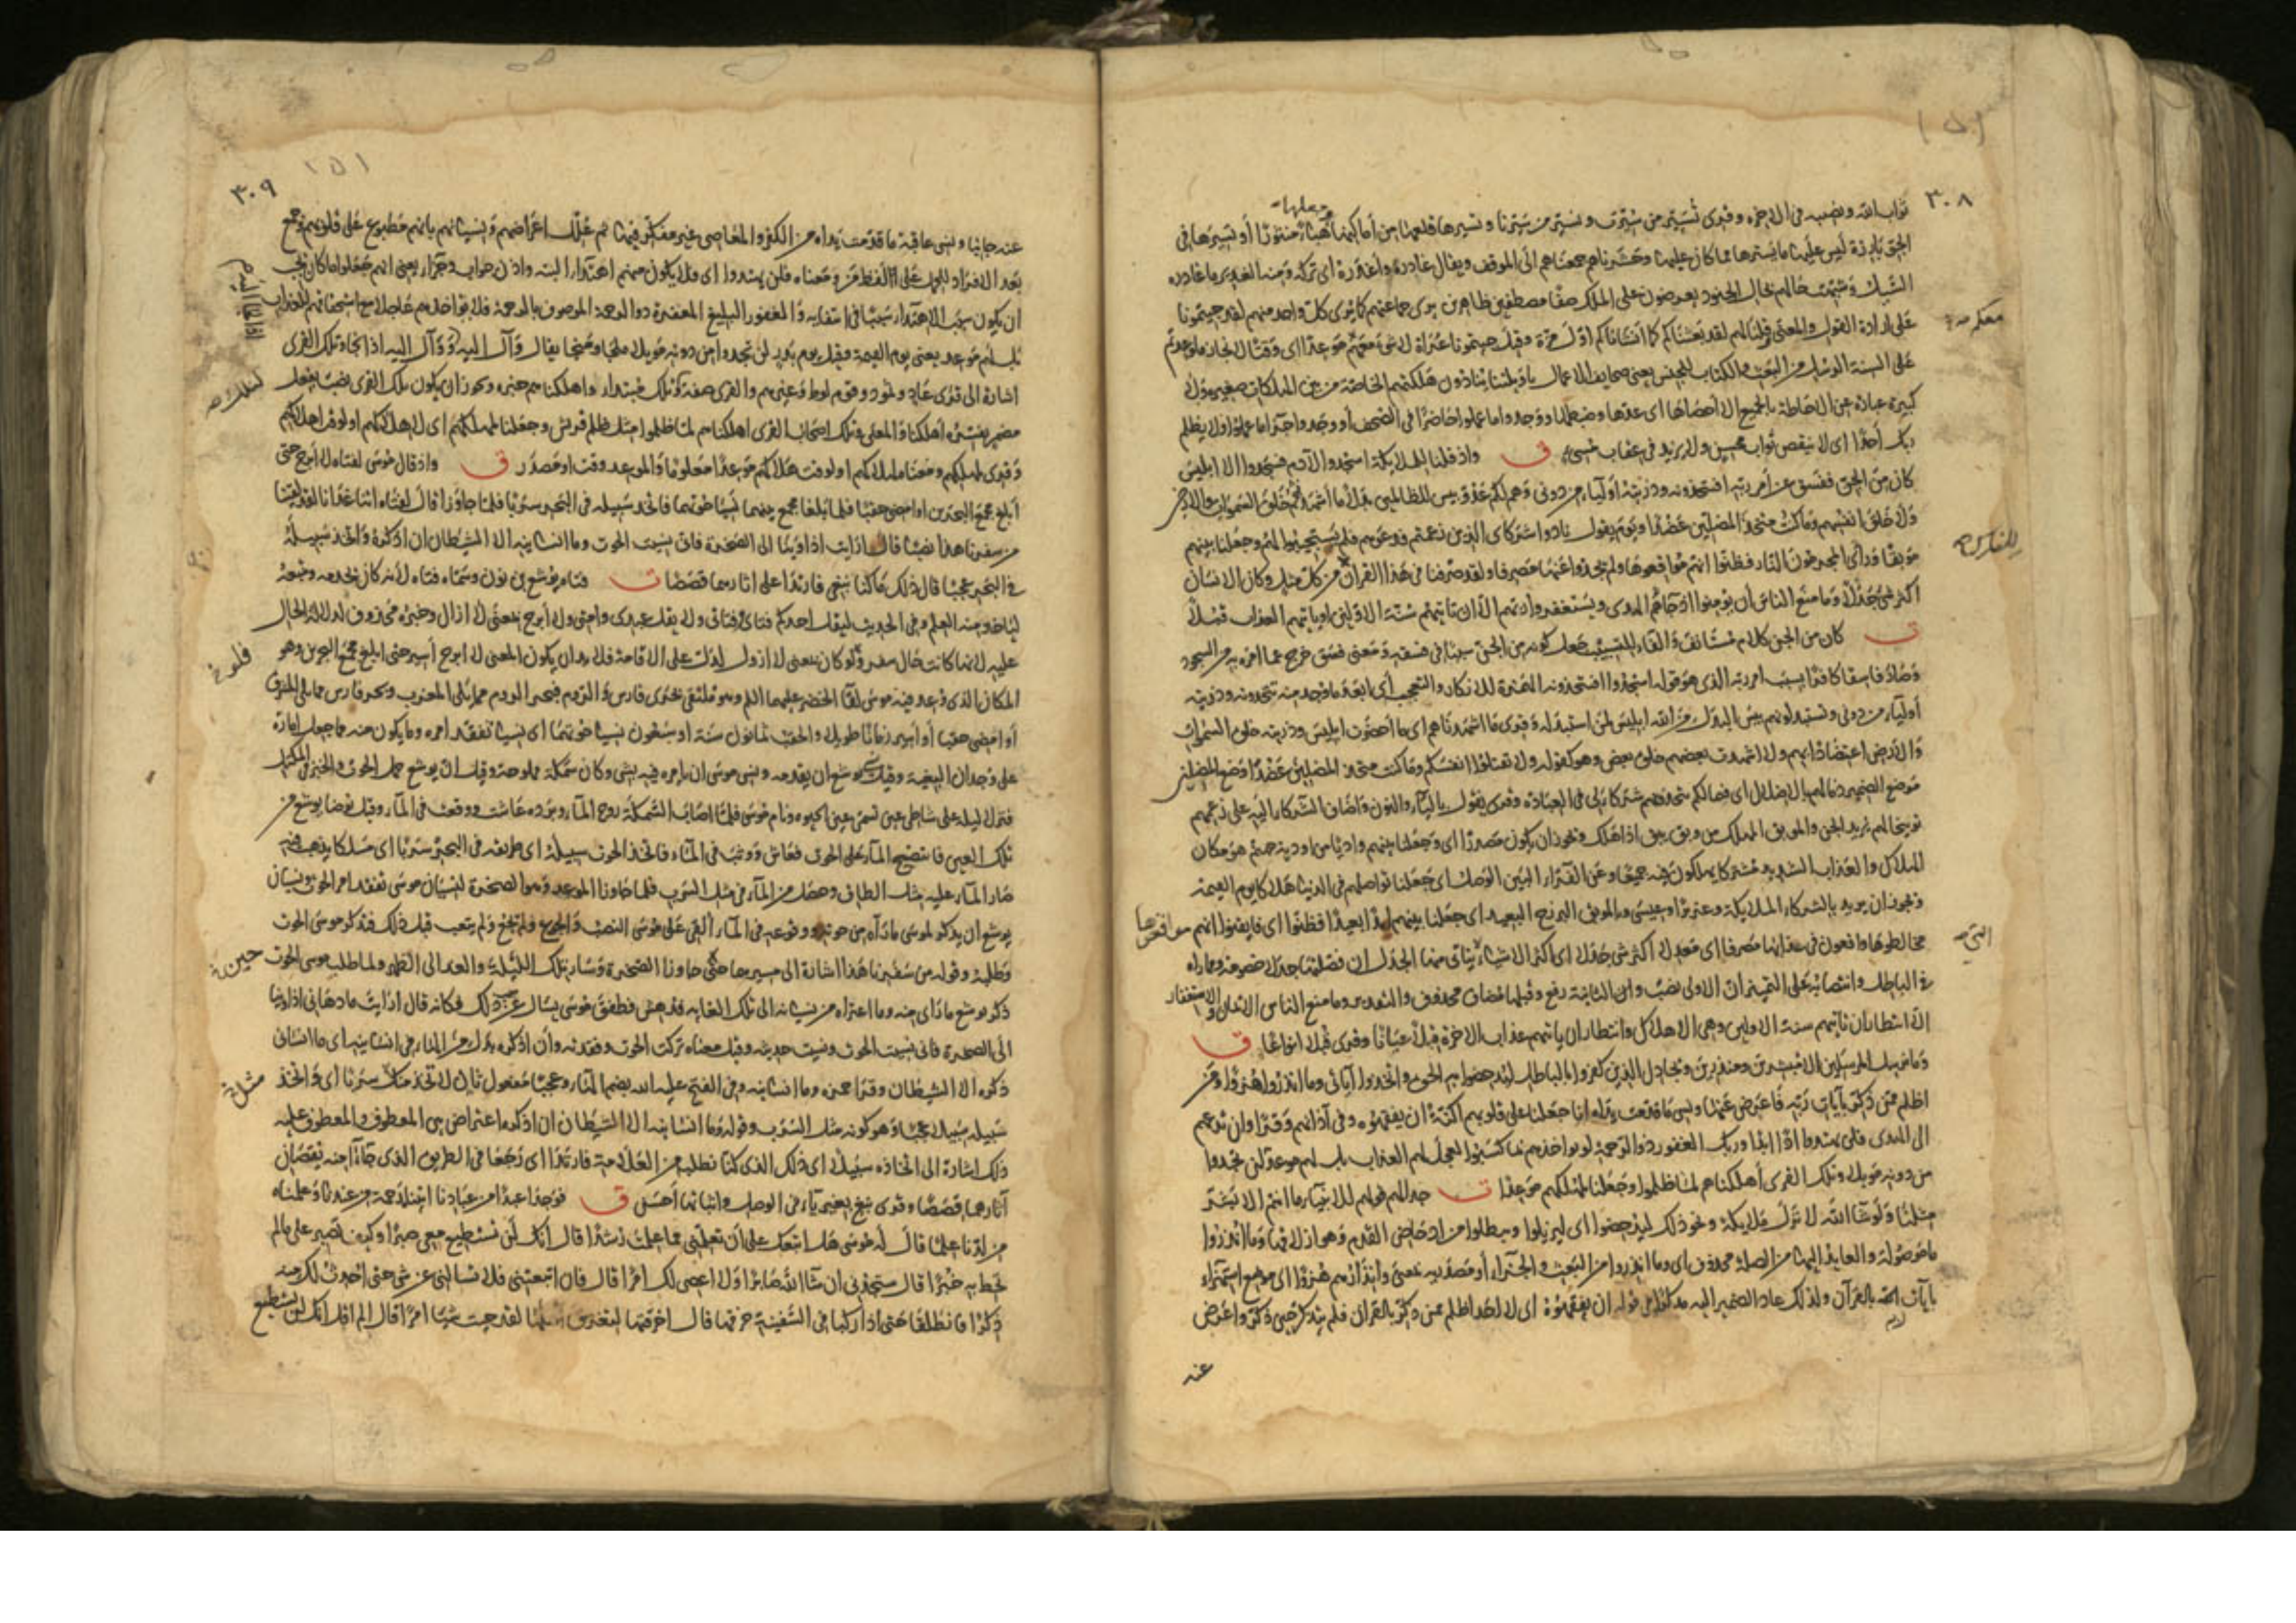 ٣٠٨
وجعلها
ثواب الله ونصيبه في الآخرة وقرئ تُسَيَّر من سُيِّرت ونسير من سَيَّرنا وتسير ها قلعها من أماكنها هباءً منثورًا أو تسييرها في
الجو بارزة ليس عليها ما يسترها مما كان عليها وحشرناهم جمعناهم الى الموقف ويقال غادره وأغدره اى تركه ومنه الغدير ما غادره
السيل وشبهت حالهم بحال الجنود يعرضون على الملك صفا مصطفين ظاهرين يرى جماعتهم كما يرى كل واحد منهم لقد جيتمونا
على ارادة القول والمعنى قلنا لهم لقد بعثناكم كما انشاناكم اول مرة وقيل جيتمونا عراة لا شئ معكم موعدا اى وقتا لانجاز ما وعدتم
على السنة الرسل من البعث والكتاب للجنس يعنى صحايف الاعمال يا ويلتنا ينادون هلكتهم الخاصة من بين الهلكات صغيرة ولا
كبيرة عبارة عن الاحاطة بالجميع الا احصاها اى عدها وضبطها ووجدوا ما عملوا حاضرا فى الصحف أو وجدوا جزا ما عملوا ولا يظلم
ربك أحدًا اى لا ينقص ثواب محسن ولا يزيد فى عقاب مسئ ق واذ قلنا للملايكة اسجدوا لآدم فسجدوا الا ابليس
كان من الجن ففسق عن أمر ربه افتتخذونه وذريته أولياء من دونى وهم لكم عدو بيس للظالمين بدلا ما أشهدتهم خلق السموات والارض
ولا خلق انفسهم وما كنت متخذ المضلين عضدًا ويوم يقول نادوا شركاى الذين زعمتم فدعوهم فلم يستجيبوا لهم وجعلنا بينهم
موبقا ورأى المجرمون النار فظنوا انهم مواقعوها ولم يجدوا عنها مصرفا ولقد صرفنا فى هذا القرآن من كل مثل وكان الانسان
اكثر شئ جدلًا وما منع الناس أن يؤمنوا اذ جاءهم الهدى ويستغفروا ربهم الا ان تاتيهم سنة الاولين او ياتيهم العذاب قبلًا
ت كان من الجن كلام مستانف والفاء للتسبيب جعل كونه من الجن سببًا فى فسقه ومعنى فسق خرج عما امره به من السجود
وصار فاسقا كافرًا بسبب امر ربه الذى هو قوله اسجدوا افتتخذونه الهمزة للانكار والتعجب أى ابعد ما وجد منه تتخدونه وذريته
أولياء من دونى وتستبدلونهم بيس البدل من الله ابليس لمن استبدله وقرئ ما اشهدناهم اى ما أحضرت ابليس وذريته خلق السموات
والارض اعتضادا بهم ولا اشهدت بعضهم خلق بعض وهو كقوله ولا تقتلوا انفسكم وما كنت متخذ المضلين عضدًا وضع المضلين
موضع الضمير ذما لهم بالاضلال اى فما لكم تتخذونهم شركاء لى فى العبادة وقرئ يقول بالياء والنون واضاف الشركاء اليه على زعمهم
توبيخا لهم يريد الجن والموبق المهلك من وبق يبق اذا هلك ويجوز ان يكون مصدرًا اى وجعلنا بينهم واديًا من اودية جهنم هو مكان
الهلاك والعذاب الشديد مشتركا يهلكون فيه جميعًا وعن الفراء البين الوصل اى جعلنا تواصلهم فى الدنيا هلاكا يوم القيمة
ويجوز ان يريد بالشركاء الملايكة وعزيرًا وعيسى وبالموبق البرزخ البعيد اى جعلنا بينهم امدًا بعيدًا فظنوا اى فايقنوا انهم مواقعوها
مخالطوها واقعون فى عذابها مصرفا اى معدلا اكثر شئ جدلا اى اكثر الاشياء التى يتاتى منها الجدل ان فصلتها جدلا خصومة ومماراه
فى الباطل وانتصابه على التمييز ان الاولى نصب وان الثانية رفع وقبلها مضاف محذوف والتقدير وما منع الناس الايمان والاستغفار
الا انتظار ان تاتيهم سنة الاولين وهى الاهلاك وانتظار ان ياتيهم عذاب الاخرة قبلًا عيانًا وقرئ قُبُلا انواعًا ق
وما نرسل المرسلين الا مبشرين ومنذرين ويجادل الذين كفروا بالباطل ليدحضوا به الحق واتخدوا آياتى وما انذروا هزوًا ومن
اظلم ممن ذكر بآيات ربه فاعرض عنها ونسى ما قدمت يداه انا جعلنا على قلوبهم اكنة ان يفقهوه وفى آذانهم وقرًا وان تدعهم
الى الهدى فلن يهتدوا اذًا ابدًا وربك الغفور ذو الرحمة لو يواخذهم بما كسبوا لعجل لهم العذاب بل لهم موعد لن يجدوا
من دونه مويلا وتلك القرى أهلكناهم لما ظلموا وجعلنا لمهلكهم موعدًا ت جدالهم قولهم للانبياء ما انتم الا بشر
مثلنا ولو شاء الله لانزل ملايكة ونحو ذلك ليدحضوا اى ليزيلوا ويبطلوا من ادحاض القدم وهو ازلاقها وما انذروا
ما موصولة والعايد اليها من الصلة محذوف اى وما انذروا من البعث والجزاء أو مصدرية بمعنى وانذارهم هزوًا اى موضع استهزاء
بآيات ربه بالقرآن ولذلك عاد الضمير اليه مذكرًا فى قوله ان يفقهوه اى لا احد اظلم ممن ذكر بالقران فلم يتذكر حين ذكر واعرض
عنه
٣٠٩
١٥١
عنه جانبا ونسى عاقبة ما قدمت يداه من الكفر والمعاصى غير مفكر فيها ثم علل اعراضهم ونسيانهم بانهم مطبوع على قلوبهم وجمع
بعد الافراد للحمل على اللفظ مَن ومعناه فلن يهتدوا اى فلا يكون منهم اهتداء البته واذن جواب وجزاء يعنى انهم جعلوا ما كان يجب
ان يكون سبب الاهتداء سببًا فى انتفايه والغفور البليغ المغفرة ذو الرحمة الموصوف بالرحمة فلا يواخذهم عاجلا مع استحقاقهم للعذاب
بل لهم موعد يعنى يوم القيمة وقيل يوم بدر لن يجدوا من دونه مويلا ملجا ومنجا يقال وَأَلَ اليه اذا لجا وتلك القرى
اشارة الى قرى عاد وثمود وقوم لوط وغيرهم والقرى صفة وتلك مبتداء واهلكناهم خبره ويجوز ان يكون تلك القرى نصب بفعل
مضمر يفسره اهلكنا والمعنى وتلك اصحاب القرى اهلكناهم لما ظلموا مثل ظلم قريش وجعلنا لمهلكهم اى لاهلاكهم او لوقت اهلاكهم
وقرئ لمهلكهم ومعناه لهلاكهم او لوقت هلاكهم موعدًا معلومًا والموعد وقت او مصدر ق واذ قال موسى لفتاه لا أبرح حتى
أبلغ مجمع البحرين او امضى حقبًا فلما بلغا مجمع بينهما نسيا حوتهما فاتخذ سبيله فى البحر سربًا فلما جاوزا قال لفتاه اتنا غدانا لقد لقينا
من سفرنا هذا نصبًا قال ارايت اذ اوينا الى الصخرة فانى نسيت الحوت وما انسانيه الا الشيطان ان اذكره واتخذ سبيله
فى البحر عجبًا قال ذلك ما كنا نبغى فارتدا على اثارهما قصصًا ت فتاه يوشع بن نون وسماه فتاه لانه كان يخدمه ويتبعه
لياخذ منه العلم وفى الحديث ليقل احدكم فتاى وفتاتى ولا يقل عبدى وامتى ولا أبرح بمعنى لا ازال وخبره محذوف لدلالة الحال
عليه لانها كانت حال سفر ولو كان بمعنى لا ازول لدل على الاقامة فلا بد ان يكون المعنى لا ابرح أسير حتى ابلغ مجمع البحرين وهو
المكان الذى وعد فيه موسى لقاء الخضر عليهما السلم وهو ملتقى بحرى فارس والروم فبحر الروم مما يلى المغرب وبحر فارس مما يلى المشرق
أو امضى حقبا أو أسير زمانًا طويلا والحقب ثمانون سنة او سبعون نسيا حوتهما اى نسيا تفقد امره وما يكون منه مما جعل امارة
على وجدان البغية وقيل نسى يوشع ان يقدمه ونسى موسى ان يامره فيه بشى وكان سمكة مملوحة وقيل ان يوشع حمل الحوت والخبز فى المكتل
فنزلا ليلة على شاطى عين تسمى عين الحيوه ونام موسى فلما اصاب السمكة روح الماء وبرده عاشت ووقعت فى الماء وقيل توضا يوشع من
تلك العين فانتضح الماء على الحوت فعاش ووثب فى الماء فاتخذ الحوت سبيله اى طريقه فى البحر سربًا اى مسلكا يذهب فيه
صار الماء عليه مثل الطاق وحصل من الماء فى مثل السرب فلما جاوزا الموعد وهو الصخرة لنسيان موسى تفقد امر الحوت ونسيان
يوشع ان يذكر لموسى ما رآه من حوته ووقوعه فى الماء القى على موسى النصب والجوع ولم يجع ولم يتعب قبل ذلك فتذكر موسى الحوت
وطلبه وقوله من سفرنا هذا اشارة الى مسيرهما حين جاوزا الصخرة وسارا تلك الليلة والغد الى الظهر ولما طلب موسى الحوت
ذكر يوشع ما رأى منه وما اعتراه من نسيانه الى تلك الغاية فدهش فطفق موسى يسال عن سبب ذلك فكانه قال ارايت ما دهانى اذ اوينا
الى الصخرة فانى نسيت الحوت ونسيت حديثه وقيل معناه تركت الحوت وفقدته وأن اذكره بدل من الهاء فى انسانيه اى ما انسانى
ذكره الا الشيطان وقرا حمزه وما انسانيه وفى الفتح عليه الله بضم الهاء وعجبًا مفعول ثان لاتخذ مثل سربًا اى واتخذ
سبيله سبيلا عجبًا وهو كونه مثل السرب وقوله وما انسانيه الا الشيطان ان اذكره اعتراض بين المعطوف والمعطوف عليه
ذلك اشارة الى اتخاذه سبيلا اى ذلك الذى كنا نطلب من العلامة فارتدا اى رجعا فى الطريق الذى جاءا منه يقصان
آثارهما قصصًا وقرئ نبغ بغير ياء فى الوصل واثباتها أحسن ق فوجدا عبدًا من عبادنا اتيناه رحمة من عندنا وعلمناه
من لدنا علمًا قال له موسى هل اتبعك على أن تعلمنى مما علمت رشدًا قال انك لن تستطيع معى صبرًا وكيف تصبر على ما لم
تحط به خبرًا قال ستجدنى ان شا الله صابرًا ولا اعصى لك امرًا قال فان اتبعتنى فلا تسالنى عن شى حتى احدث لك منه
ذكرًا فانطلقا حتى اذا ركبا فى السفينة خرقها قال اخرقتها لتغرق اهلها لقد جيت شيًا امرًا قال الم اقل انك لن تستطيع